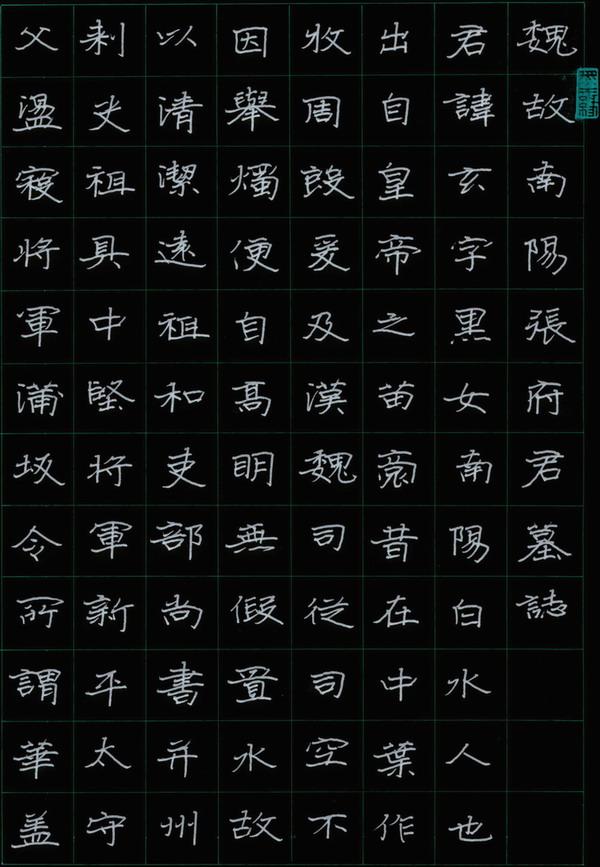 魏故南陽張府君墓誌
君諱玄字黑女南陽白水人也
出自皇帝之苗裔昔在中葉作
牧周殷爰及漢魏司徒司空不
因舉燭便自高明無假置水故
以清潔遠祖和吏部尚書并州
刺史祖具中堅將軍新平太守
父盪寇將軍蒲坂令所謂華盖